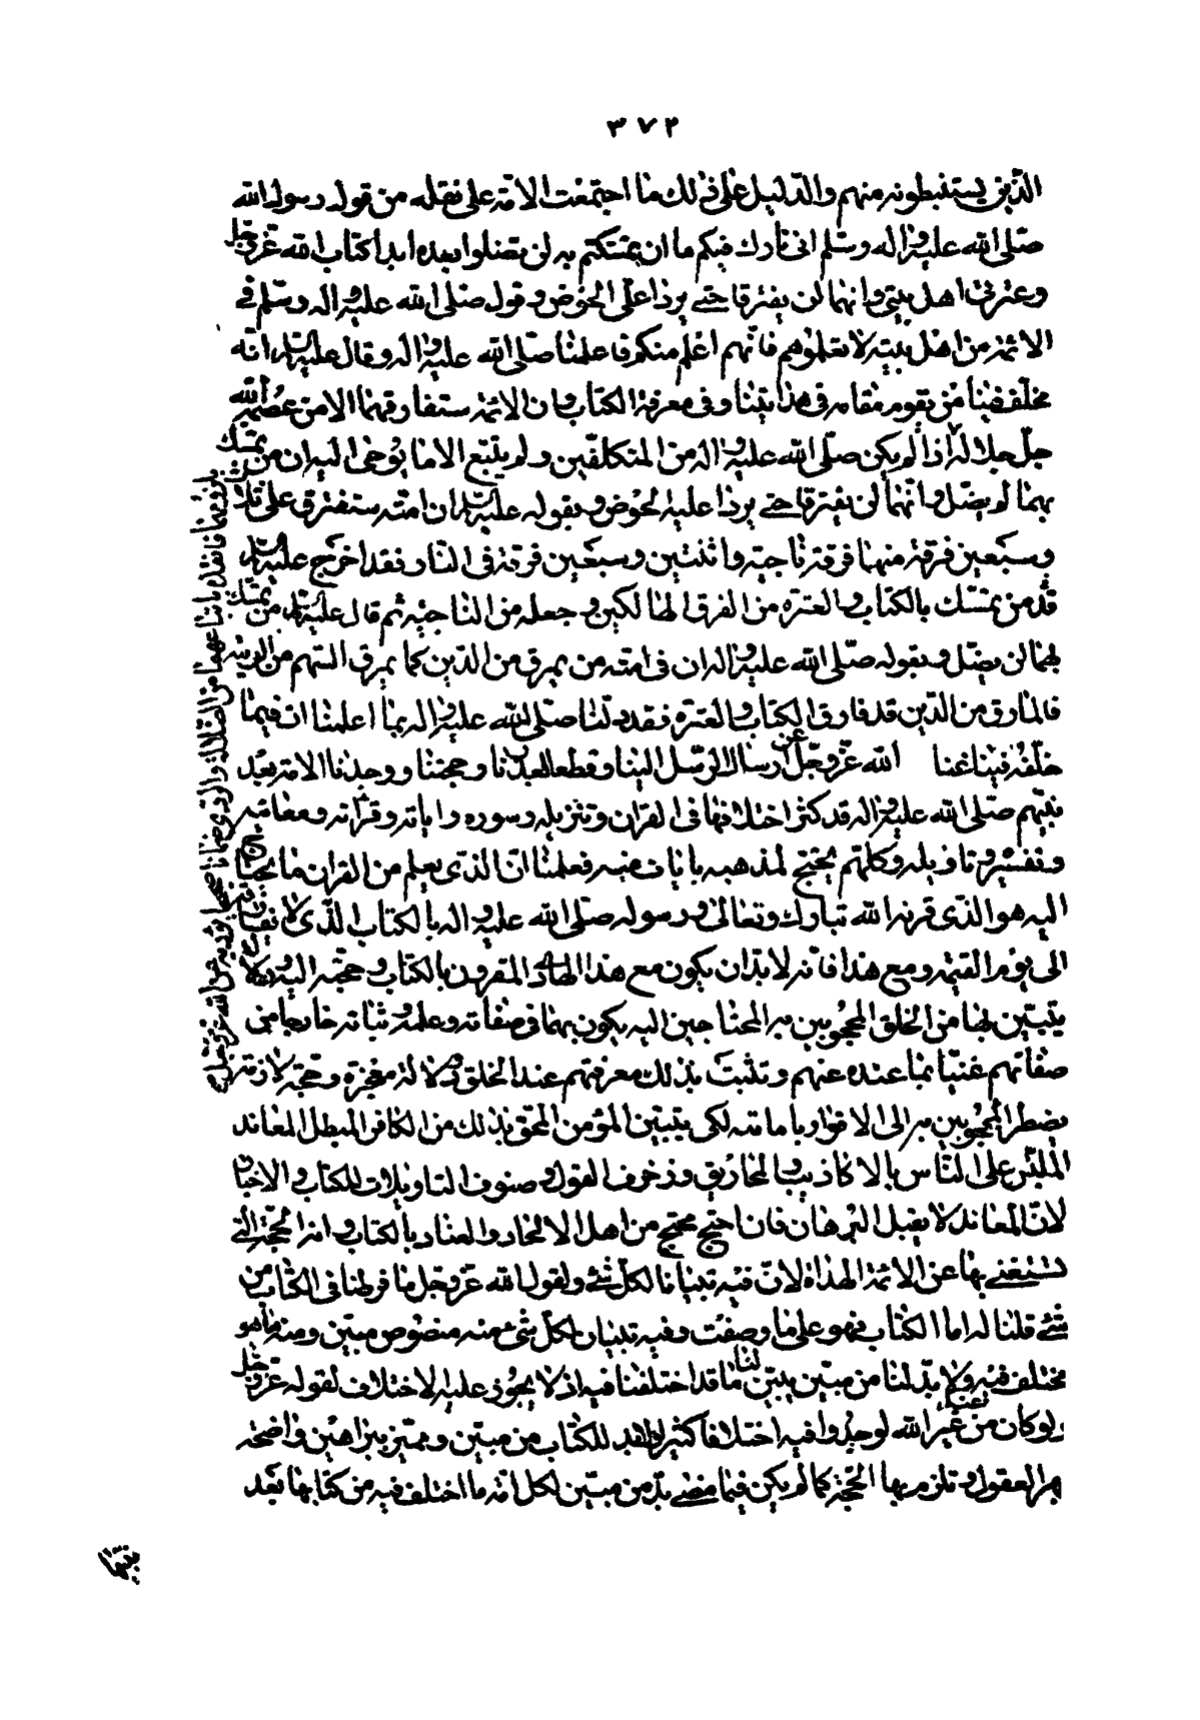 ٣٧٢
الذين يستنبطونه منهم والدليل على ذلك ما اجتمعت الامة على نقله من قول رسول الله
صلى الله عليه واله وسلم انى تارك فيكم ما ان تمسكتم به لن تضلوا بعده ابدا كتاب الله عز وجل
وعترتى اهل بيتى وانهما لن يفترقا حتى يردا على الحوض وقوله صلى الله عليه واله وسلم فى
الائمة من اهل بيته لا تعلموهم فانهم اعلم منكم فاعلمنا صلى الله عليه واله وقال عليه السلام انه
مخلف فينا من يقوم مقامه فى هدايتنا وفى معرفة الكتاب وان الامة ستفارقهما الا من عصمه الله
جل جلاله اذ لم يكن صلى الله عليه واله من المتكلفين ولم يتبع الا ما يوحى اليه ان من تمسك
بهما لم يضل وانهما لن يفترقا حتى يردا عليه الحوض وبقوله عليه السلام ان امته ستفترق على ثلاث
وسبعين فرقة منهما فرقة ناجية واثنتين وسبعين فرقة فى النار فقد اخرج عليه السلام
من تمسك بالكتاب والعترة من الفرق الهالكين وجعله من الناجية ثم قال عليه السلام من تمسك
بهما لن يضل وبقوله صلى الله عليه واله ان فى امته من يمرق من الدين كما يمرق السهم من الرمية
فالمارق من الدين قد فارق الكتاب والعترة فقد دلنا صلى الله عليه واله بما اعلمنا ان فيما
خلفه فينا غنا عن الله عز وجل ارسال الرسل الينا وقطعا لعذرنا وحجتنا ووجدنا الامة بعد
نبيهم صلى الله عليه واله قد كثر اختلافها فى القران وتنزيله وسوره واياته وقرائته ومعانيه
وتفسيره وتاويله وكلهم يحتج لمذهبه بايات منه فعلمنا ان الذى يعلم من القران ما يحتاج
اليه هو الذى قرنه الله تبارك وتعالى ورسوله صلى الله عليه واله بالكتاب الذى لا يفارقه
الى يوم القيمة ومع هذا فانه لابد ان يكون مع هذا الهادى المقرون بالكتاب وحجته اليه ودلالة
يتبين بها من الخلق المحجوبين به المحتاجين اليه يكون بهما فى صفاته وعلمه وثباته خارجا من
صفاتهم غنيا بما عنده عنهم وتثبت بذلك معرفتهم عند الخلق دلالة معجزة وحجة لازمة
يضطر المحجوبين به الى الاقرار بامامته لكى يتبين المؤمن المحق بذلك من الكافر المبطل المعاند
الملبس على الناس بالاكاذيب والمخاريق وزخرف القول وصنوف التاويلات للكتاب والاخبار
لان المعاند لا يقبل البرهان فان احتج محتج من اهل الالحاد والعناد بالكتاب وانه الحجة التى
يستغنى بها عن الائمة الهداة لان فيه تبيانا لكل شىء ولقول الله عز وجل ما فرطنا فى الكتاب من
شىء قلنا له اما الكتاب فهو على ما وصفت وفيه تبيان لكل شىء منه منصوص مبين ومنه ما هو
مختلف فيه ولا بد لنا من مبين يبين لنا ما قد اختلفنا فيه اذ لا يجوز عليه الاختلاف لقوله عز وجل
ولو كان من عند غير الله لوجدوا فيه اختلافا كثيرا ولابد للكتاب من مبين ومميز ببراهين واضحة
العقول وتلزم بها الحجة كما لم يكن فيما مضى بد من مبين لكل امة ما اختلف فيه من كتابها بعد
نبيها